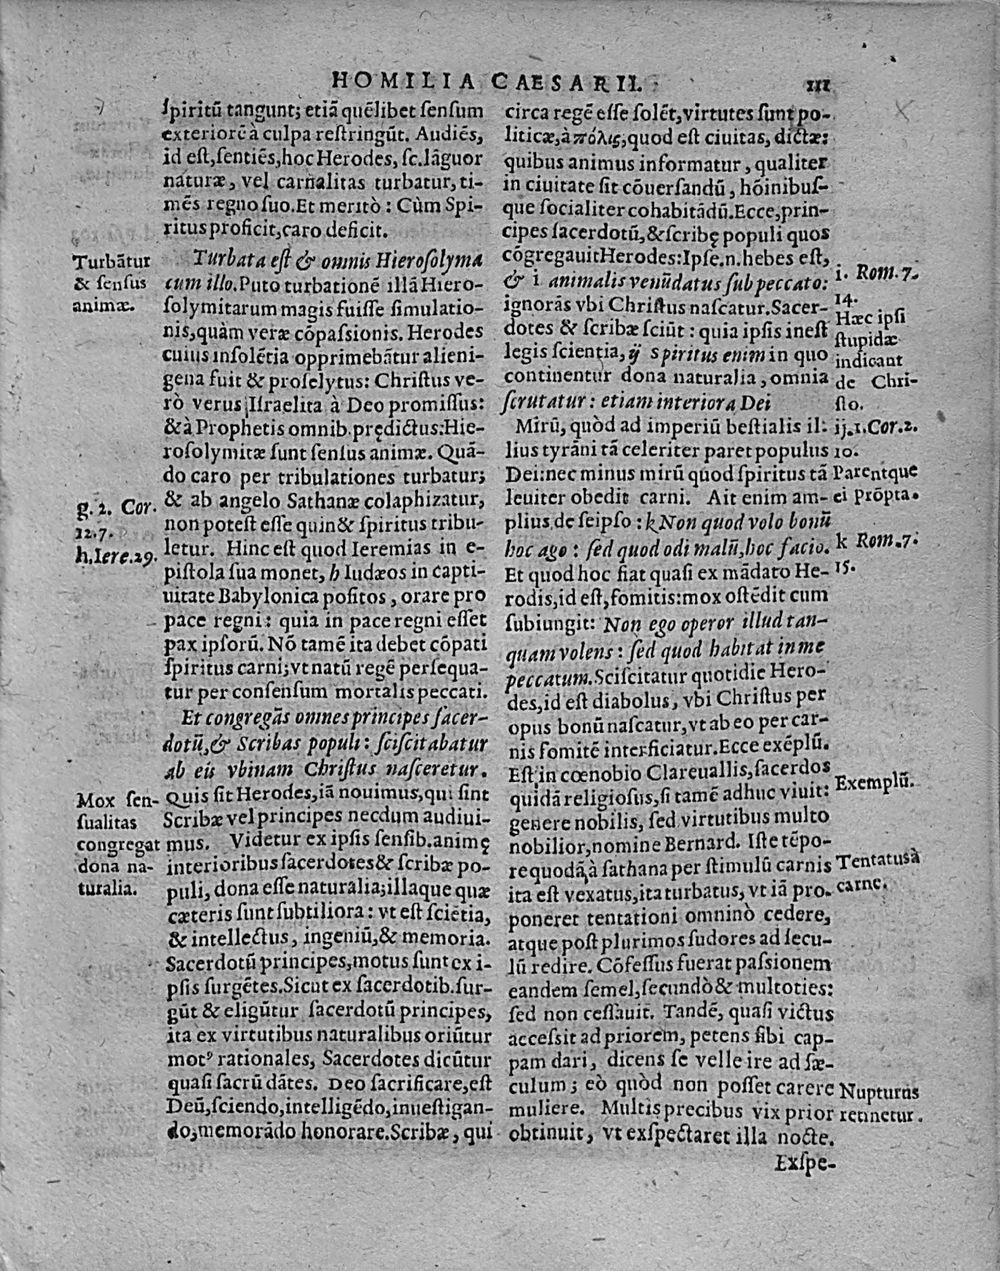 HOMILIA CAESARII. 111
ſpiritū tangunt; etiā quēlibet ſenſum
exteriorē à culpa reſtringūt. Audiēs,
id eſt, ſentiēs, hoc Herodes, ſc. lāguor
naturæ, vel carnalitas turbatur, ti-
mēs regno ſuo. Et meritò: Cùm Spi-
ritus proficit, caro deficit.
Turbātur
& ſenſus
animæ.
Turbata eſt & omnis Hieroſolyma
cum illo. Puto turbationē illā Hiero-
ſolymitarum magis fuiſſe ſimulatio-
nis, quàm veræ cōpaſſionis. Herodes
cuius inſolētia opprimebātur alieni-
gena fuit & proſelytus: Chriſtus ve-
rò verus Iſraelita à Deo promiſſus:
& à Prophetis omnib. prędictus: Hie-
roſolymitæ ſunt ſenſus animæ. Quā-
do caro per tribulationes turbatur;
g. 2. Cor.
12.7.
h. Iere. 29.
& ab angelo Sathanæ colaphizatur,
non poteſt eſſe quin & ſpiritus tribu-
letur. Hinc eſt quod Ieremias in e-
piſtola ſua monet, h Iudæos in capti-
uitate Babylonica poſitos, orare pro
pace regni: quia in pace regni eſſet
pax ipſorū. Nō tamē ita debet cōpati
ſpiritus carni; vt natū regē perſequa-
tur per conſenſum mortalis peccati.
Et congregās omnes principes ſacer-
dotū, & Scribas populi: ſciſcitabatur
ab eis vbinam Chriſtus naſceretur.
Mox ſen-
ſualitas
congregat
dona na-
turalia.
Quis ſit Herodes, iā nouimus, qui ſint
Scribæ vel principes necdum audiui-
mus. Videtur ex ipſis ſenſib. animę
interioribus ſacerdotes & ſcribæ po-
puli, dona eſſe naturalia; illaque quæ
cæteris ſunt ſubtiliora: vt eſt ſciētia,
& intellectus, ingeniū, & memoria.
Sacerdotū principes, motus ſunt ex i-
pſis ſurgētes. Sicut ex ſacerdotib. ſur-
gūt & eligūtur ſacerdotū principes,
ita ex virtutibus naturalibus oriūtur
motꝰ rationales, Sacerdotes dicūtur
quaſi ſacrū dātes. Deo ſacrificare, eſt
Deū, ſciendo, intelligēdo, inueſtigan-
do, memorādo honorare. Scribæ, qui
circa regē eſſe ſolēt, virtutes ſunt po-
liticæ, à πόλις, quod eſt ciuitas, dictæ:
quibus animus informatur, qualiter
in ciuitate ſit cōuerſandū, hōinibuſ-
que ſocialiter cohabitādū. Ecce, prin-
cipes ſacerdotū, & ſcribę populi quos
cōgregauit Herodes: Ipſe. n. hebes eſt,
& i animalis venūdatus ſub peccato:
ignorās vbi Chriſtus naſcatur. Sacer-
dotes & ſcribæ ſciūt: quia ipſis ineſt
legis ſcientia, ij Spiritus enim in quo
continentur dona naturalia, omnia
ſcrutatur: etiam interiora Dei
i. Rom. 7.
14.
Hæc ipſi
ſtupidæ
indicant
de Chri-
ſto.
ij. 1. Cor. 2.
10.
Parentque
ei prōpta.
Mirū, quòd ad imperiū beſtialis il-
lius tyrāni tā celeriter paret populus
Dei: nec minus mirū quod ſpiritus tā
leuiter obedit carni. Ait enim am-
plius, de ſeipſo: k Non quod volo bonū
hoc ago: ſed quod odi malū, hoc facio.
Et quod hoc fiat quaſi ex mādato He-
rodis, id eſt, fomitis: mox oſtēdit cum
ſubiungit: Non ego operor illud tan-
quam volens: ſed quod habitat in me
peccatum. Sciſcitatur quotidie Hero-
des, id eſt diabolus, vbi Chriſtus per
opus bonū naſcatur, vt ab eo per car-
nis fomitē interficiatur. Ecce exēplū.
k Rom. 7.
15.
Exemplū.
Eſt in cœnobio Clareuallis, ſacerdos
quidā religioſus, ſi tamē adhuc viuit:
genere nobilis, ſed virtutibus multo
nobilior, nomine Bernard. Iſte tēpo-
re quodā à ſathana per ſtimulū carnis
ita eſt vexatus, ita turbatus, vt iā pro-
poneret tentationi omninò cedere,
atque poſt plurimos ſudores ad ſecu-
lū redire. Cōfeſſus fuerat paſſionem
eandem ſemel, ſecundò & multoties:
ſed non ceſſauit. Tandē, quaſi victus
acceſſit ad priorem, petens ſibi cap-
pam dari, dicens ſe velle ire ad ſæ-
culum; eò quòd non poſſet carere
muliere. Multis precibus vix prior
obtinuit, vt exſpectaret illa nocte.
Tentatus à
carne.
Nupturus
retinetur.
Exſpe-